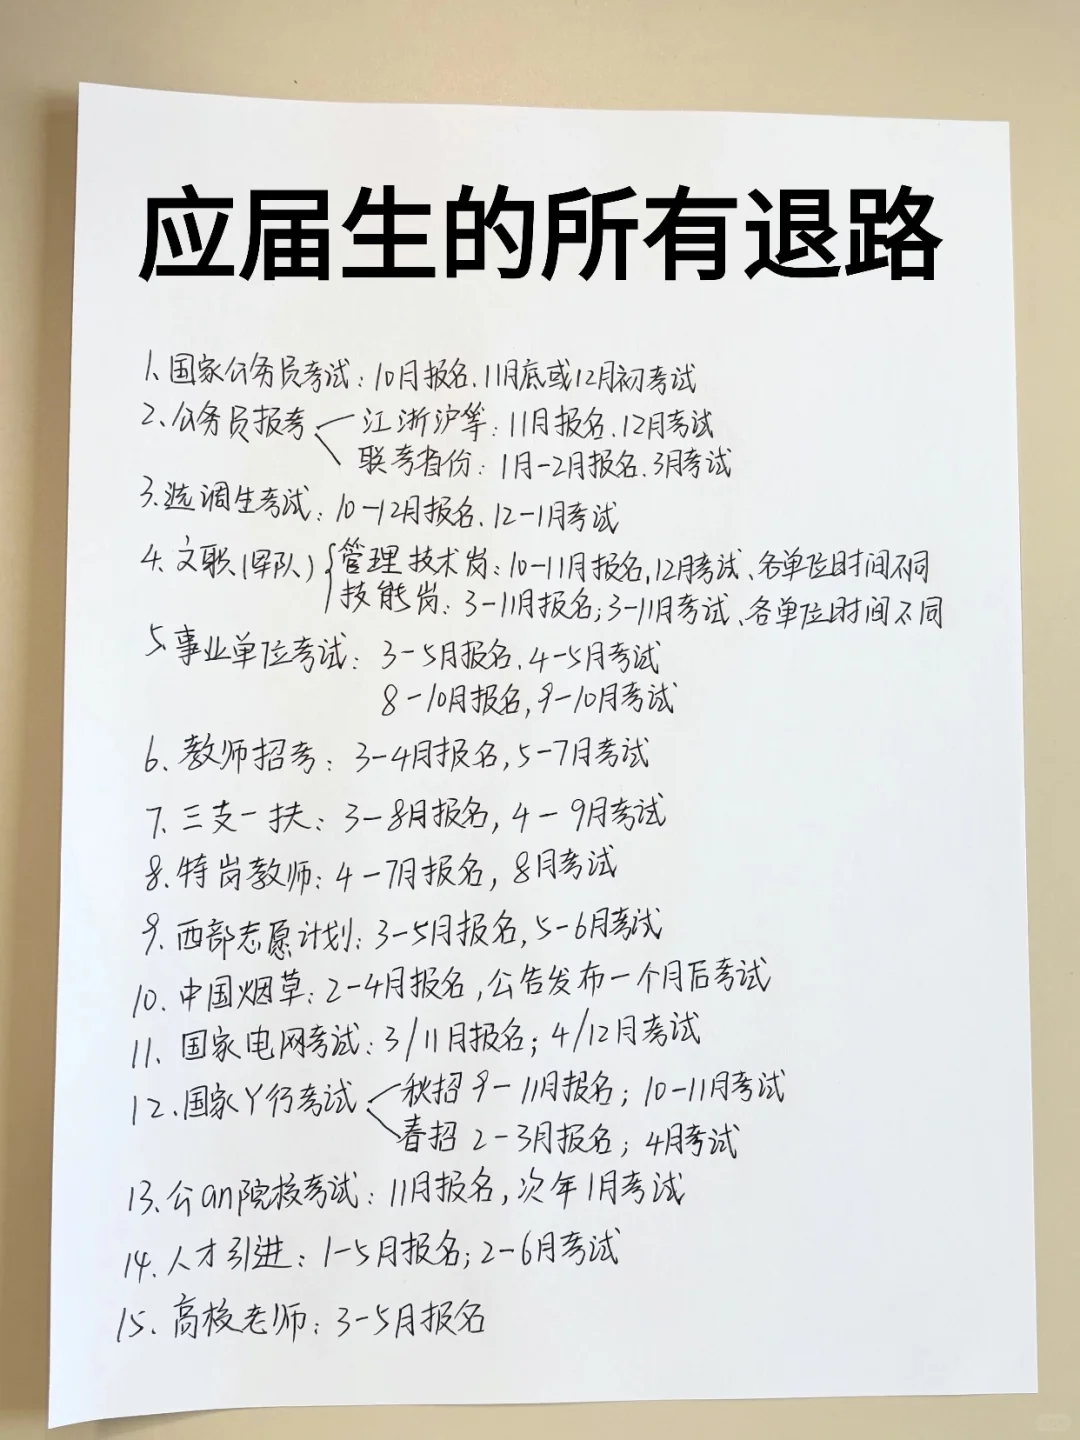 应届生的所有退路
1、国家公务员考试：10月报名、11月底或12月初考试
2、公务员报考 江浙沪等：11月报名、12月考试
联考省份：1月-2月报名、3月考试
3、选调生考试：10-12月报名、12-1月考试
4、文职(军队) 管理技术岗：10-11月报名,12月考试、各单位时间不同
技能岗：3-11月报名；3-11月考试、各单位时间不同
5、事业单位考试：3-5月报名、4-5月考试
8-10月报名,9-10月考试
6、教师招考：3-4月报名,5-7月考试
7、三支一扶：3-8月报名,4-9月考试
8、特岗教师：4-7月报名,8月考试
9、西部志愿计划：3-5月报名,5-6月考试
10、中国烟草：2-4月报名,公告发布一个月后考试
11、国家电网考试：3/11月报名；4/12月考试
12、国家丫行考试 秋招9-11月报名；10-11月考试
春招 2-3月报名；4月考试
13、公an院校考试：11月报名,次年1月考试
14、人才引进：1-5月报名；2-6月考试
15、高校老师：3-5月报名